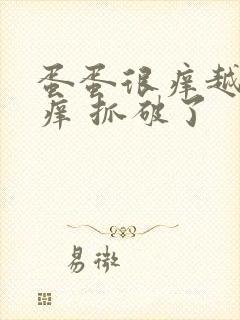 蛋蛋很痒越
痒 抓破了
易微